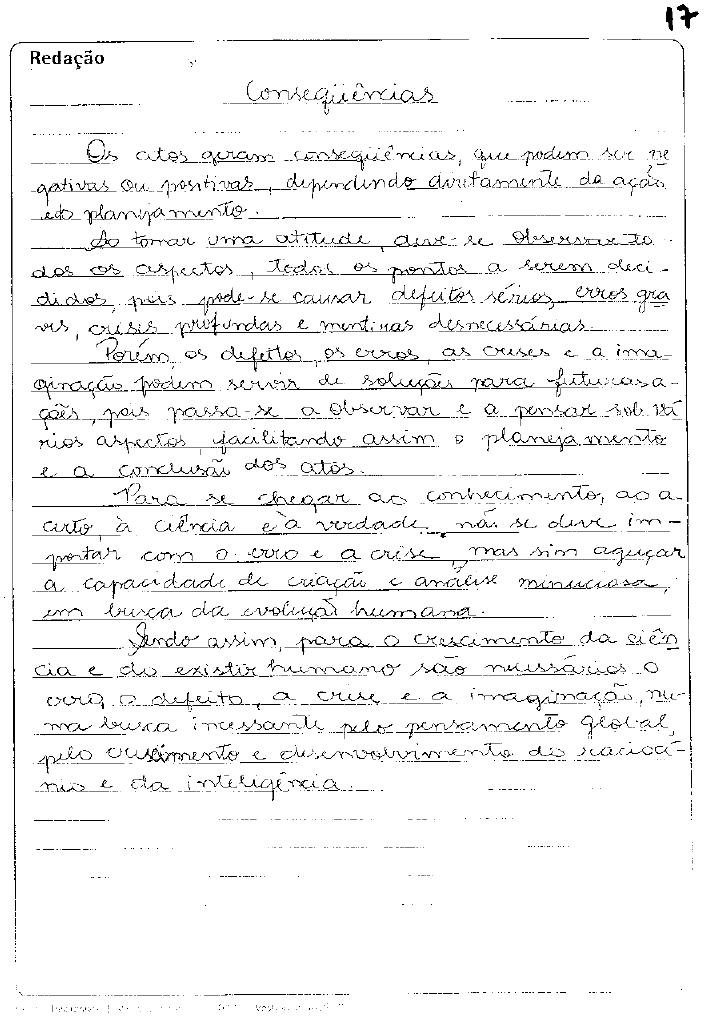 17
Redação
Conseqüências
Os atos geram conseqüências, que podem ser ne
gativas ou positivas, dependendo diretamente da ação
e do planejamento.
Ao tomar uma atitude, deve-se observar to
dos os aspectos, todos os pontos a serem deci-
didos, pois pode-se causar defeitos sérios, erros gra
ves, crises profundas e mentiras desnecessárias.
Porém, os defeitos, os erros, as crises e a ima-
ginação podem servir de soluções para futuras a-
ções, pois passa-se a observar e a pensar sob vá
rios aspectos, facilitando assim o planejamento
e a conclusão dos atos.
Para se chegar ao conhecimento, ao a-
certo, à ciência e à verdade, não se deve im-
portar com o erro e a crise, mas sim aguçar
a capacidade de criação e análise minuciosa,
em busca da evolução humana.
Sendo assim, para o crescimento da ciên
cia e do existir humano são necessários o
erro, o defeito, a crise e a imaginação, nu-
ma busca incessante pelo pensamento global,
pelo crescimento e desenvolvimento do raciocí-
nio e da inteligência.